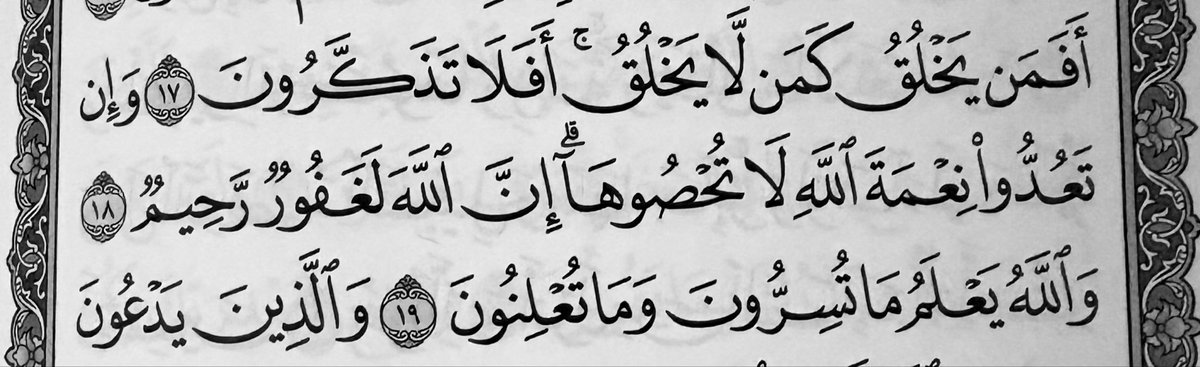 أَفَمَن يَخْلُقُ كَمَن لَّا يَخْلُقُ ۚ أَفَلَا تَذَكَّرُونَ ١٧ وَإِن
تَعُدُّوا۟ نِعْمَةَ ٱللَّهِ لَا تُحْصُوهَآ ۗ إِنَّ ٱللَّهَ لَغَفُورٌ رَّحِيمٌ ١٨
وَٱللَّهُ يَعْلَمُ مَا تُسِرُّونَ وَمَا تُعْلِنُونَ ١٩ وَٱلَّذِينَ يَدْعُونَ